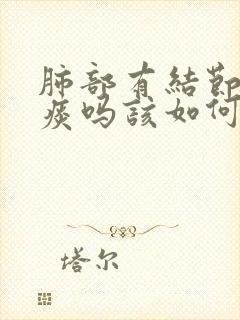 肺部有結節
痰吗該如何
塔尔